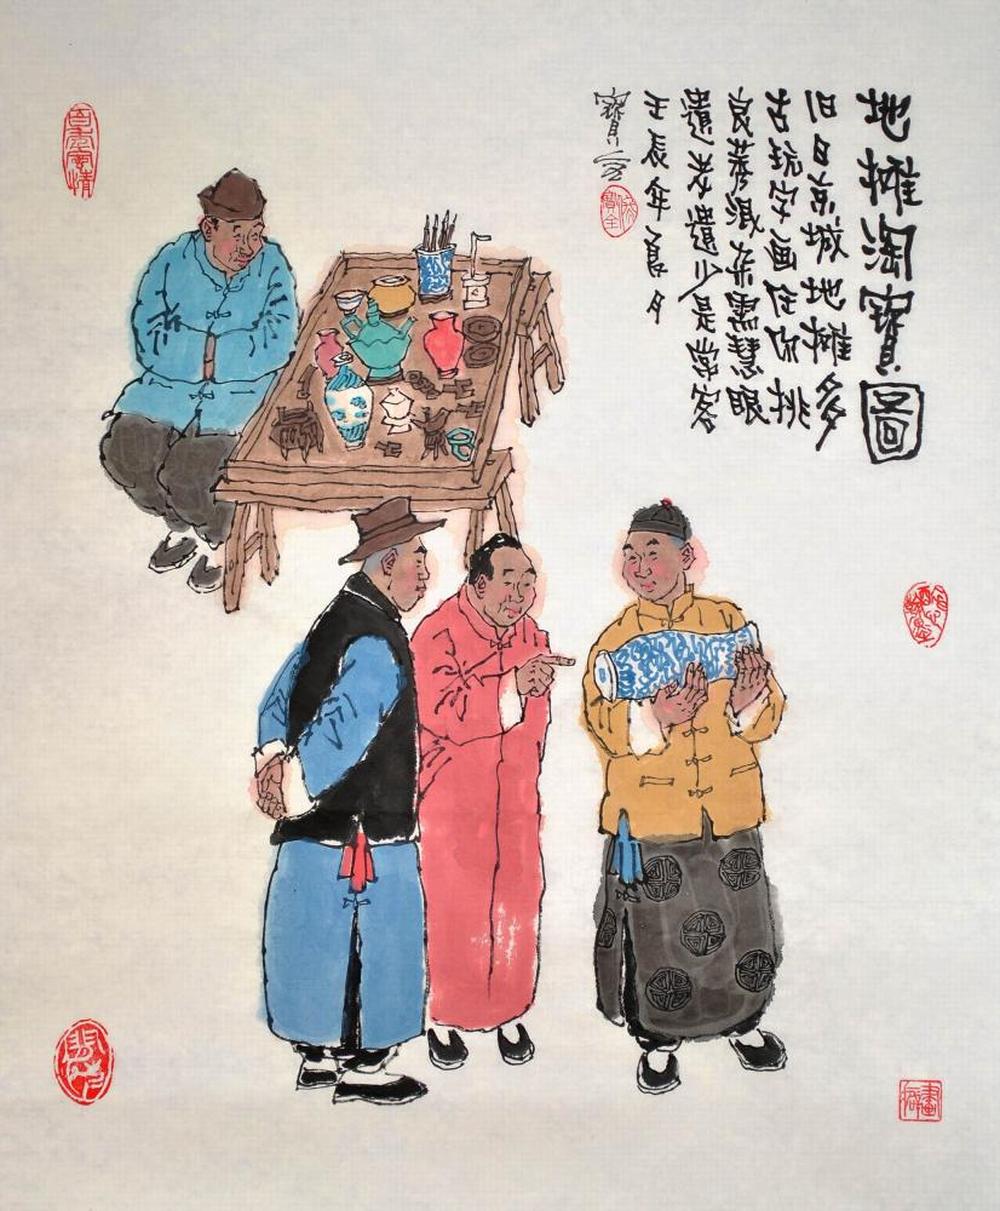 地摊淘寶圖
旧日京城地摊多
古玩字画任你挑
良莠混杂需慧眼
遺老遺少是常客
壬辰年夏月